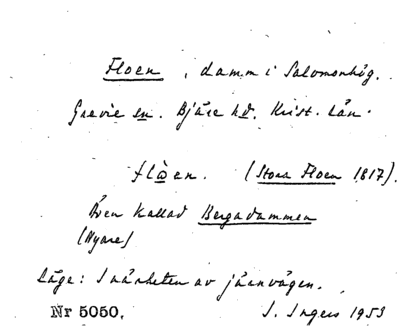 Floen, damm i Salomonhög.
Grevie sn. Bjäre hd. Krist. län.
flòen. (Stora Floen 1817).
Även kallad Bergadammen
(Nyare)
Läge: I närheten av järnvägen.
Nr 5050. I. Ingers 1953